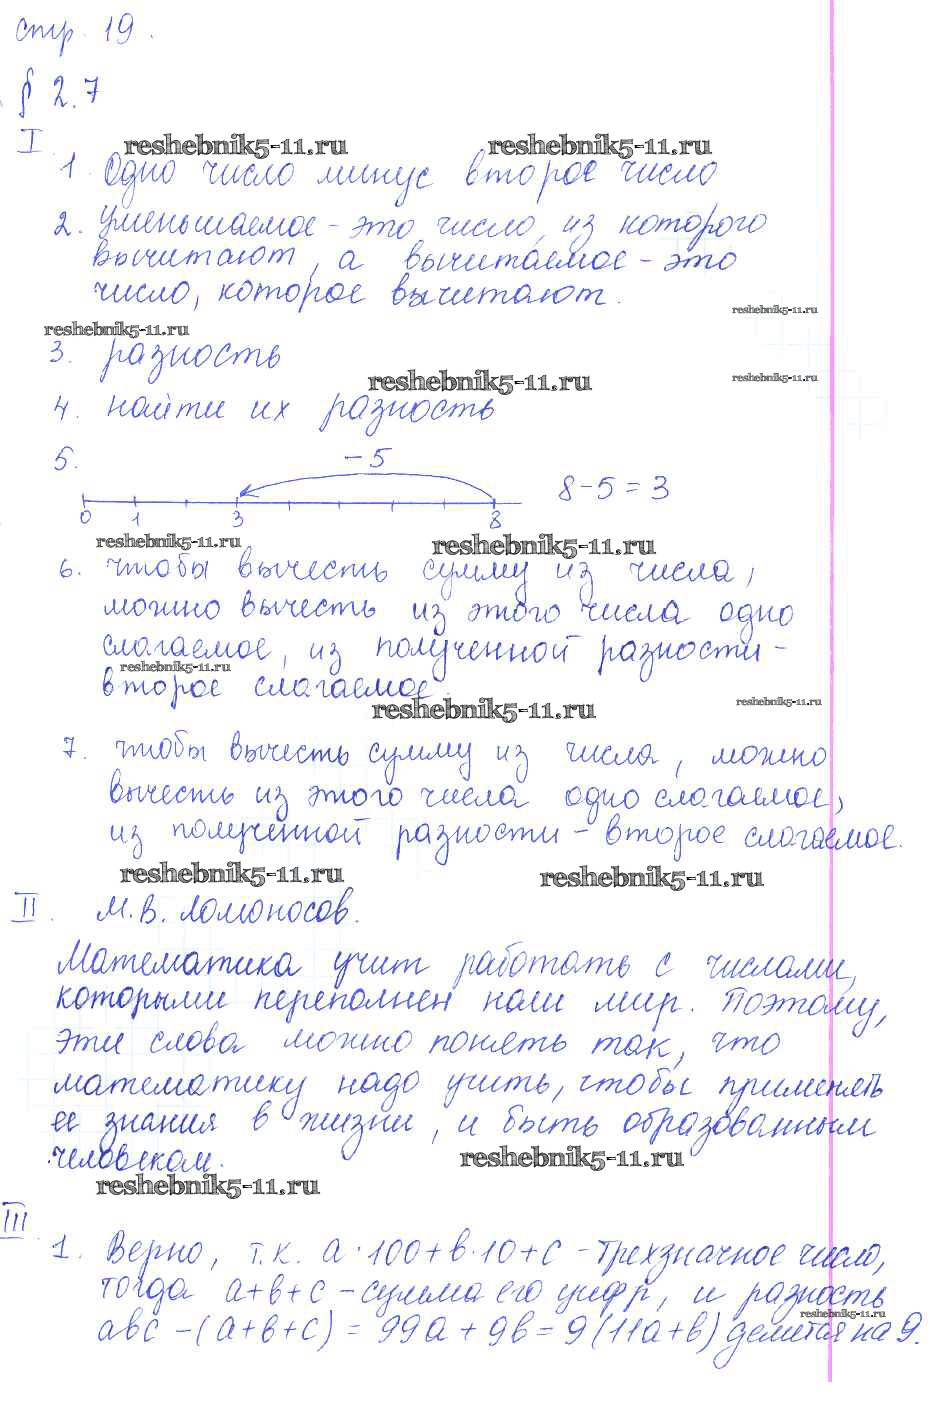 стр. 19.
§ 2.7
I
reshebnik5-11.ru reshebnik5-11.ru
1. Одно число минус второе число
2. Уменьшаемое - это число, из которого
вычитают, а вычитаемое - это
число, которое вычитают.
reshebnik5-11.ru
reshebnik5-11.ru
3. разность
reshebnik5-11.ru reshebnik5-11.ru
4. найти их разность
5. -5
8-5=3
0 1 3 8
reshebnik5-11.ru reshebnik5-11.ru
6. чтобы вычесть сумму из числа,
можно вычесть из этого числа одно
слагаемое, из полученной разности -
reshebnik5-11.ru
второе слагаемое.
reshebnik5-11.ru reshebnik5-11.ru
7. чтобы вычесть сумму из числа, можно
вычесть из этого числа одно слагаемое,
из полученной разности - второе слагаемое.
reshebnik5-11.ru reshebnik5-11.ru
II. М.В. Ломоносов.
Математика учит работать с числами,
которыми переполнен наш мир. Поэтому,
эти слова можно понять так, что
математику надо учить, чтобы применять
ее знания в жизни, и быть образованным
человеком.
reshebnik5-11.ru
reshebnik5-11.ru
III
1. Верно, т.к. a·100+b·10+c - трехзначное число,
тогда a+b+c - сумма его цифр, и разность
reshebnik5-11.ru
abc - (a+b+c) = 99a + 9b = 9(11a+b) делится на 9.